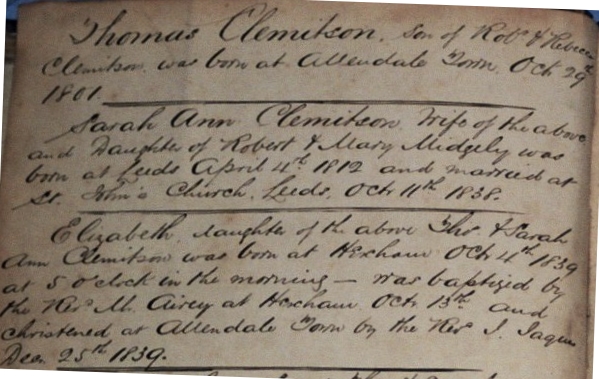 Thomas Clemitson. Son of Robt & Rebecca
Clemitson was born at Allendale Town. Oct. 29th
1801.
Sarah Ann Clemitson Wife of the above
and Daughter of Robert & Mary Midgely was
born at Leeds April 4th 1812 and married at
St. John's Church, Leeds, Octr 11th 1838.
Elizabeth, daughter of the above Thos. & Sarah
Ann Clemitson was born at Hexham Octr 4th 1839
at 5 o'clock in the morning — was baptized by
the Revd M. Airey at Hexham Octr 13th and
christened at Allendale Town by the Revd J. Jaques
Decr 25th 1839.